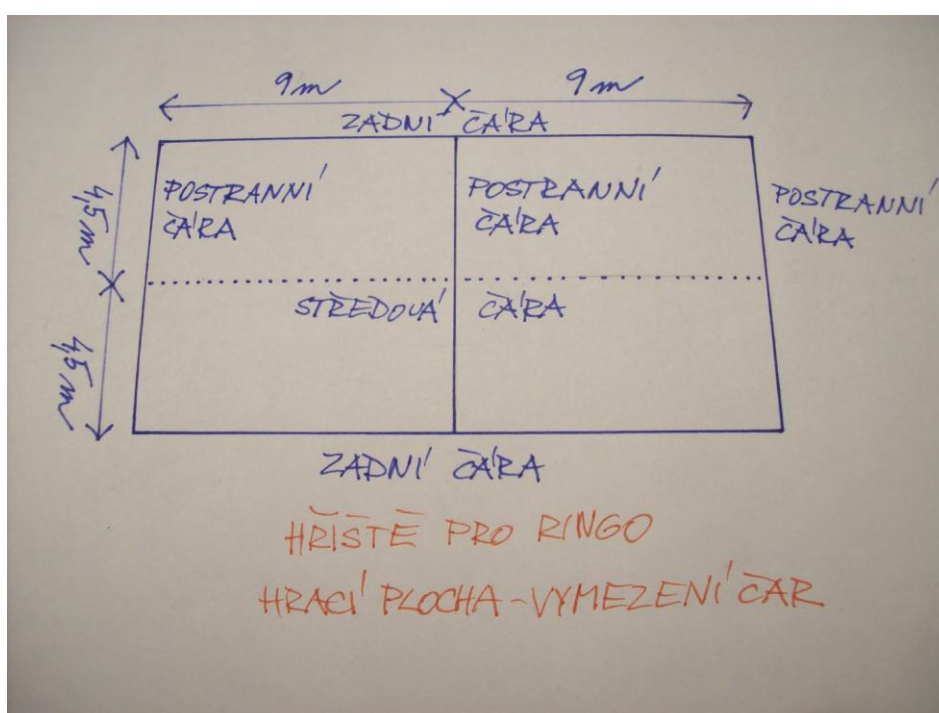 9m 9m
ZADNÍ ČÁRA
POSTRANNÍ
ČÁRA
POSTRANNÍ
ČÁRA
POSTRANNÍ
ČÁRA
4,5m
STŘEDOVÁ ČÁRA
4,5m
ZADNÍ ČÁRA
HŘIŠTĚ PRO RINGO
HRACÍ PLOCHA-VYMEZENÍ ČAR